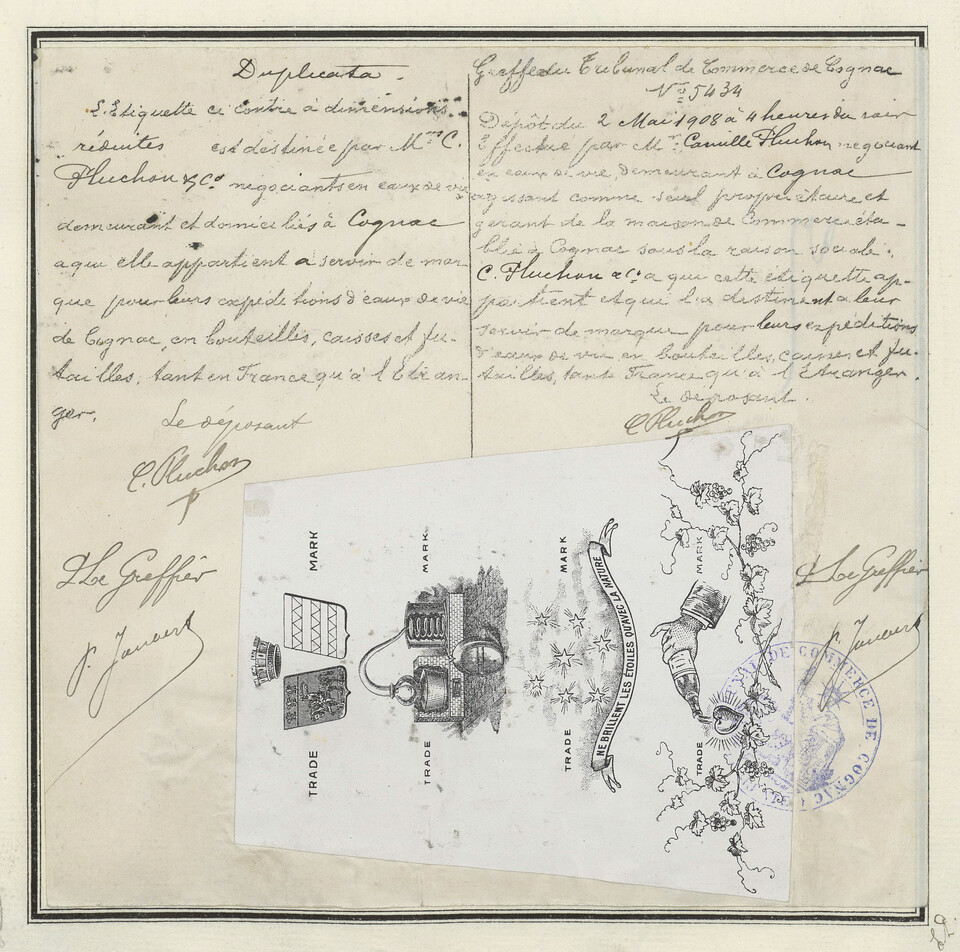 Duplicata.
L'Etiquette ci contre à dimensions
réduites est destinée par Mrs C.
Pluchon & Co négociants en eaux de vie
demeurant et domiciliés à Cognac
a qui elle appartient a servir de mar
que pour leurs expéditions d'eaux de vie
de Cognac, en bouteilles, caisses et fu-
tailles, tant en France qu'à l'Etran-
ger.
Le déposant
C. Pluchon
Le Greffier
Greffe du Tribunal de Commerce de Cognac
No 5434
Dépôt du 2 Mai 1908 à 4 heures du soir
Effectué par Mr. Camille Pluchon négociant
en eaux de vie, demeurant à Cognac
agissant comme seul propriétaire et
gérant de la maison de Commerce éta-
blie à Cognac sous la raison sociale:
C. Pluchon & Co a qui cette etiquette ap-
partient et qui la destinent a leur
servir de marque pour leurs expéditions
d'eaux de vie en bouteilles, caisses et fu-
tailles, tant France qu'à l'Etranger.
Le déposant.
C. Pluchon
Le Greffier
TRADE MARK
TRADE MARK
TRADE MARK
NE BRILLENT LES ÉTOILES QU'AVEC LA NATURE
TRADE MARK
TRIBUNAL DE COMMERCE DE COGNAC